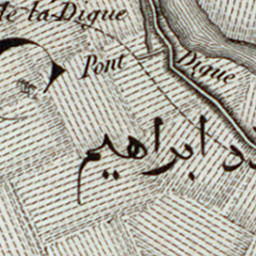 de la Digue
Pont
Digue
ابراهيم